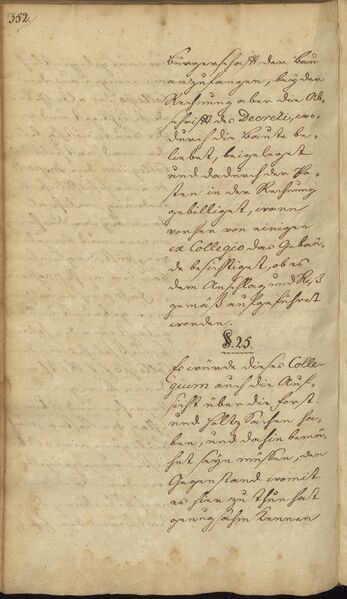 352.
Bürgerschafft der Bau
anzufangen, beÿ der
Rechnung aber die Ab-
schrifft des Decreti, wo-
durch die Baute be-
liebet, beigeleget
und dadurch der Po-
sten in der Rechnung
gebilliget, wann
vorher von einigen
ex Collegio das Gebäu-
de besichtiget, ob es
dem Anschlag und Riß
gemäß ausgeführet
worden.
§. 25.
Es würde dieses Colle-
gium auch die Auf-
sicht über die Forst
und Holtz Sachen ha-
ben, und dahin bemü-
het seÿn müssen, den
Gegenstand womit
es hier zu thun hat
genugsahm kennen